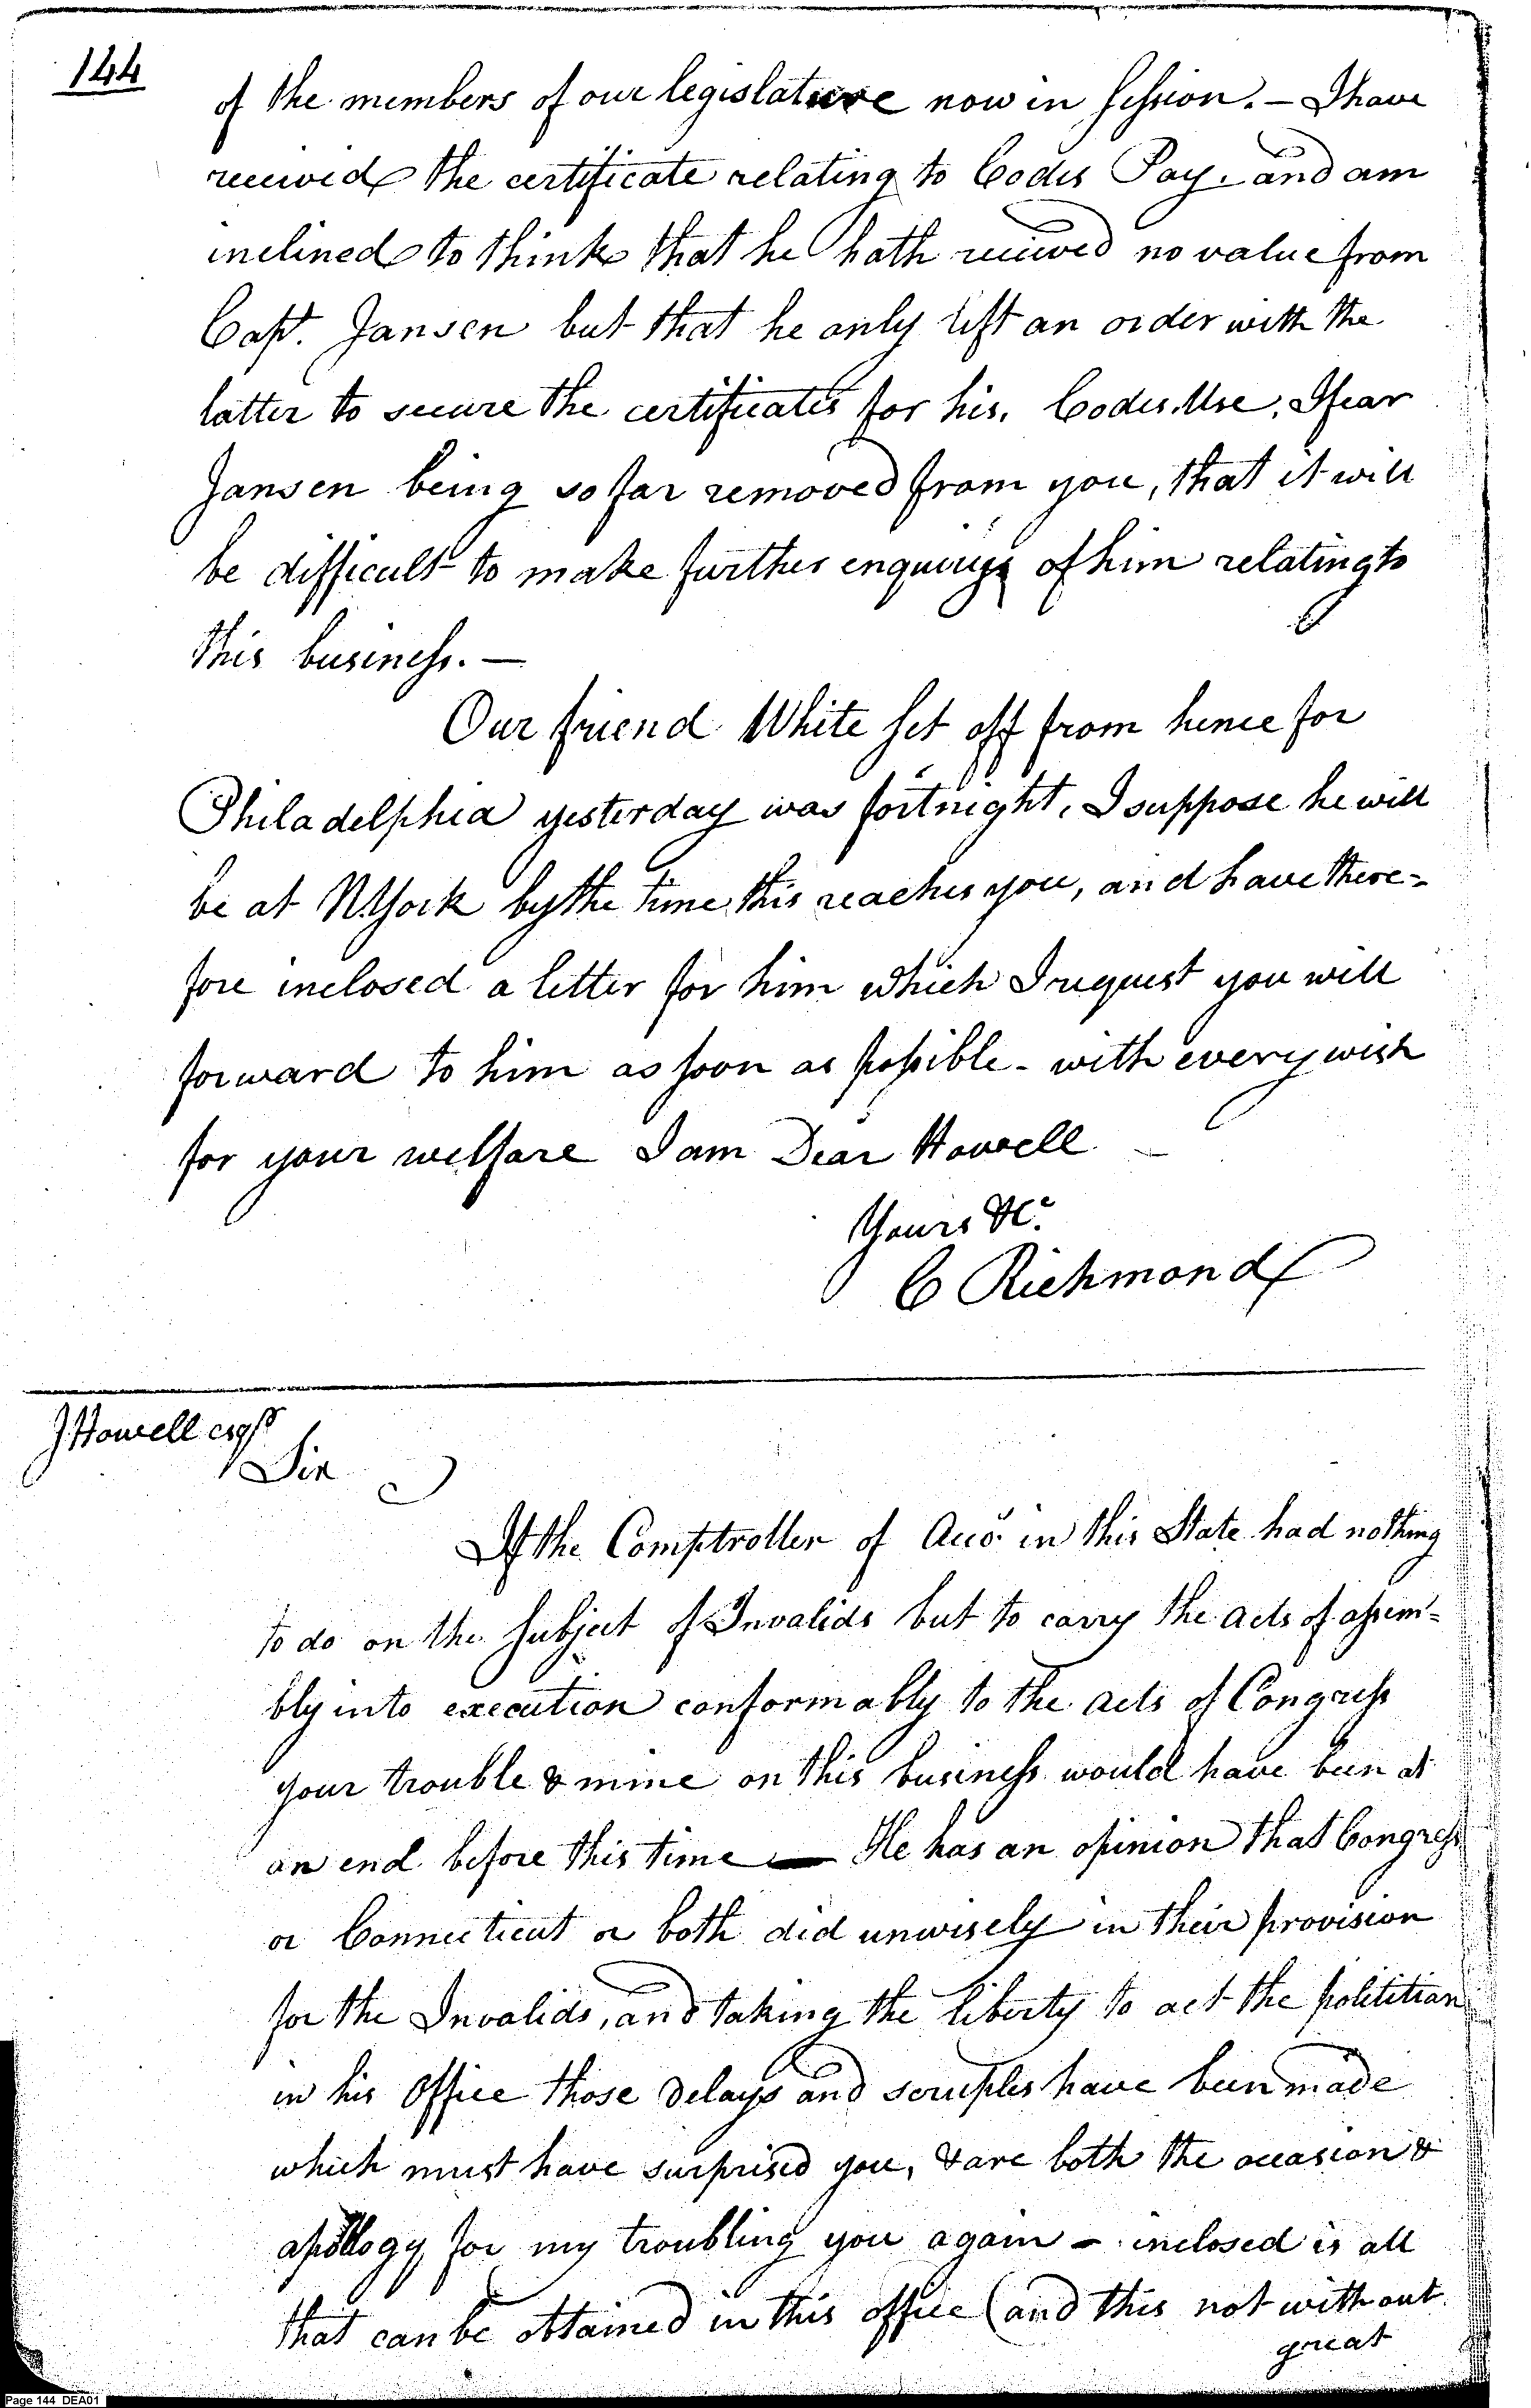 144
of the members of our legislature now in session. – I have
received the certificate relating to Codes Pay. and am
inclined to think that he hath received no value from
Capt. Jansen but that he only left an order with the
latter to secure the certificates for his, Codes Use, I fear
Jansen being so far removed from you, that it will
be difficult to make further enquirys of him relating to
this business. –
Our friend White set off from hence for
Philadelphia yesterday was fortnight, I suppose he will
be at N.York by the time this reaches you, and have there=
fore inclosed a letter for him which I request you will
forward to him as soon as possible – with every wish
for your welfare I am Dear Howell –
Yours &c.
C Richmond
J Howell esqr
Sir
If the Comptroller of Accs. in this State had nothing
to do on the subject of Invalids but to carry the acts of assem=
bly into execution conformably to the acts of Congress
your trouble & mine on this business would have been at
an end before this time — He has an opinion that Congress
or Connecticut or both did unwisely in their provision
for the Invalids, and taking the liberty to act the polititian
in his Office those delays and scruples have been made
which must have surprised you, & are both the occasion &
apology for my troubling you again – inclosed is all
that can be obtained in this office (and this not without
great
Page 144 DEA01